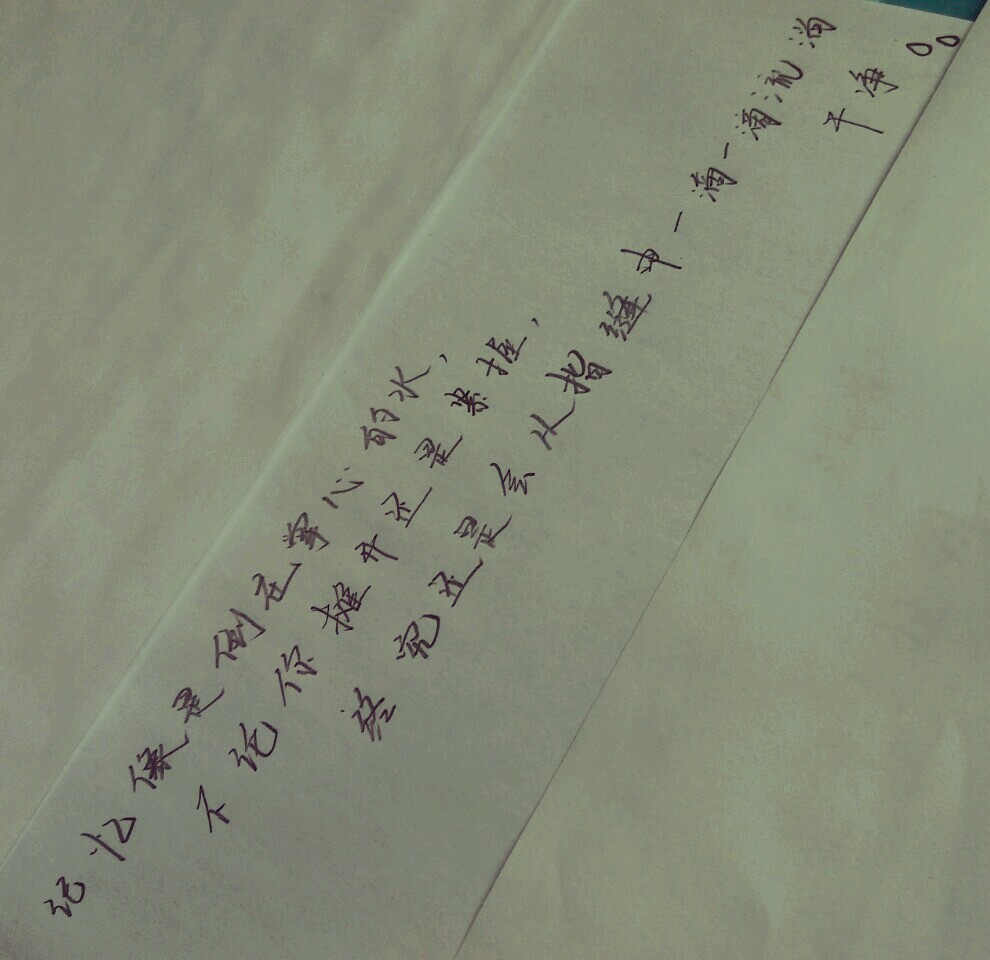 记忆像是倒在掌心的水，
不论你摊开还是紧握，
终究还是会从指缝中一滴一滴流淌
干净。。